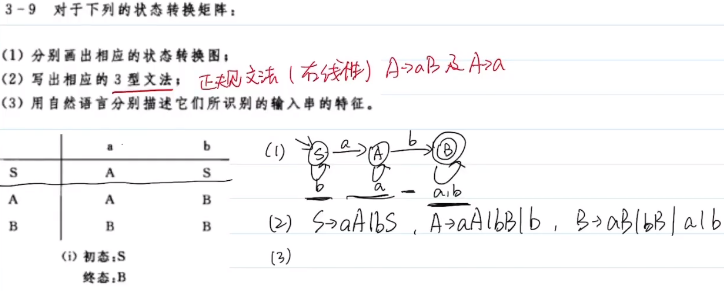 3-9 对于下列的状态转换矩阵：
(1) 分别画出相应的状态转换图；
(2) 写出相应的3型文法； 正规文法（右线性）A→aB及A→a
(3) 用自然语言分别描述它们所识别的输入串的特征。
a b
S A S
A A B
B B B
(i) 初态：S
终态：B
(1) S a A b B
b a a,b
(2) S→aA|bS , A→aA|bB|b , B→aB|bB|a|b
(3)